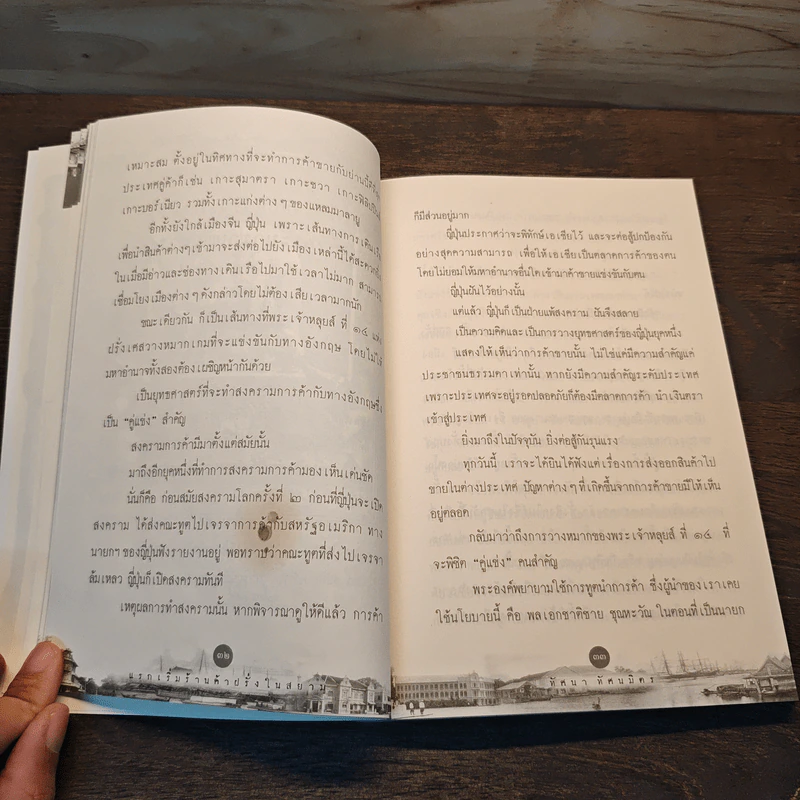 เหมาะสม ตั้งอยู่ในทิศทางที่จะทำการค้าขายกับย่านนี้
ประเทศคู่ค้าก็เช่น เกาะสุมาตรา เกาะชวา
เกาะบอร์เนียว รวมทั้งเกาะแก่งต่างๆ ของแหลมมาลายู
อีกทั้งยังใกล้เมืองจีน ญี่ปุ่น เพราะเส้นทางการเดินเรือ
เพื่อนำสินค้าต่างๆ เข้ามาจะส่งต่อไปยังเมืองเหล่านี้ได้สะดวก
ในเมื่อมีอ่าวและช่องทางเดินเรือไปมาใช้เวลาไม่มาก
เชื่อมโยงเมืองต่างๆ ดังกล่าวโดยไม่ต้องเสียเวลามากนัก
ขณะเดียวกัน ก็เป็นเส้นทางที่พระเจ้าหลุยส์ ที่ ๑๔ แห่ง
ฝรั่งเศสวางหมากเกมที่จะแข่งขันกับทางอังกฤษ โดยไม่ให้
มหาอำนาจทั้งสองต้องเผชิญหน้ากันด้วย
เป็นยุทธศาสตร์ที่จะทำสงครามการค้ากับทางอังกฤษซึ่ง
เป็น “คู่แข่ง” สำคัญ
สงครามการค้ามีมาตั้งแต่สมัยนั้น
มาถึงอีกยุคหนึ่งที่ทำการสงครามการค้ามองเห็นเด่นชัด
นั่นก็คือ ก่อนสมัยสงครามโลกครั้งที่ ๒ ก่อนที่ญี่ปุ่นจะเปิด
สงคราม ได้ส่งคณะทูตไปเจรจาการค้ากับสหรัฐอเมริกา ทาง
นายกฯ ของญี่ปุ่นฟังรายงานอยู่ พอทราบว่าคณะทูตที่ส่งไปเจรจา
ล้มเหลว ญี่ปุ่นก็เปิดสงครามทันที
เหตุผลการทำสงครามนั้น หากพิจารณาดูให้ดีแล้ว การค้า
๓๒
แรกเริ่มร้านค้าฝรั่งในสยาม
ก็มีส่วนอยู่มาก
ญี่ปุ่นประกาศว่าจะพิทักษ์เอเชียไว้ และจะต่อสู้ปกป้องกัน
อย่างสุดความสามารถ เพื่อให้เอเชียเป็นตลาดการค้าของตน
โดยไม่ยอมให้มหาอำนาจอื่นใดเข้ามาค้าขายแข่งขันกับตน
ญี่ปุ่นฝันไว้อย่างนั้น
แต่แล้ว ญี่ปุ่นก็เป็นฝ่ายแพ้สงคราม ฝันจึงสลาย
เป็นความคิดและเป็นการวางยุทธศาสตร์ของญี่ปุ่นยุคหนึ่ง
แสดงให้เห็นว่าการค้าขายนั้น ไม่ใช่แค่มีความสำคัญแต่
ประชาชนธรรมดาเท่านั้น หากยังมีความสำคัญระดับประเทศ
เพราะประเทศจะอยู่รอดปลอดภัยก็ต้องมีตลาดการค้า นำเงินตรา
เข้าสู่ประเทศ
ยิ่งมาถึงในปัจจุบัน ยิ่งต่อสู้กันรุนแรง
ทุกวันนี้ เราจะได้ยินได้ฟังแต่เรื่องการส่งออกสินค้าไป
ขายในต่างประเทศ ปัญหาต่างๆ ที่เกิดขึ้นจากการค้าขายมีให้เห็น
อยู่ตลอด
กลับมาว่าถึงการวางหมากของพระเจ้าหลุยส์ ที่ ๑๔ ที่
จะพิชิต “คู่แข่ง” คนสำคัญ
พระองค์พยายามใช้การทูตนำการค้า ซึ่งผู้นำของเราเคย
ใช้นโยบายนี้ คือ พลเอกชาติชาย ชุณหะวัณ ในตอนที่เป็นนายก
๓๓
ทัศนา ทัศนมิตร